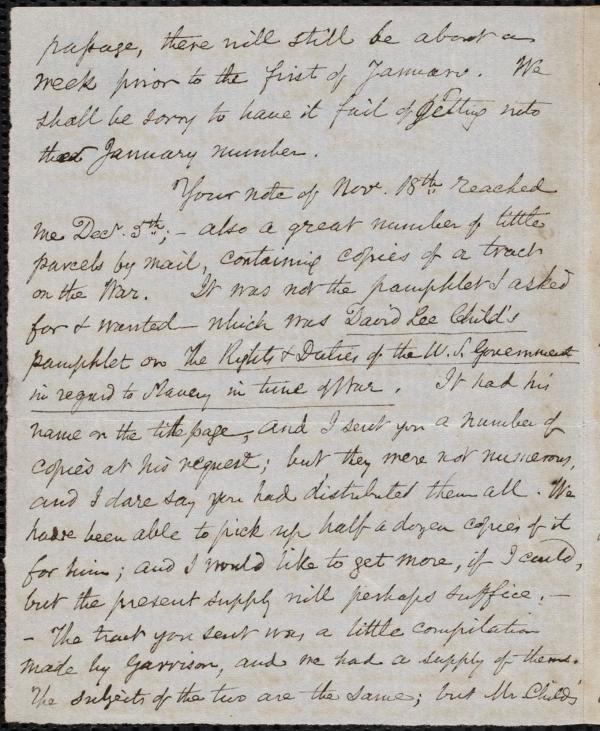 passage, there will still be about a
week prior to the first of January. We
shall be sorry to have it fail of getting into
the January number.
Your note of Novr. 18th. reached
me Decr. 5th.; – also a great number of little
parcels by mail, containing copies of a tract
on the War. It was not the pamphlet I asked
for & wanted – which was David Lee Child's
pamphlet on The Rights & Duties of the U. S. Government
in regard to Slavery in time of War. It had his
name on the title page, and I sent you a number of
copies at his request; but they were not numerous,
and I dare say you had distributed them all. We
have been able to pick up half a dozen copies of it
for him; and I would like to get more, if I could,
but the present supply will perhaps suffice. –
– The tract you sent was a little compilation
made by Garrison, and we had a supply of them.
The subjects of the two are the same; but Mr Child's